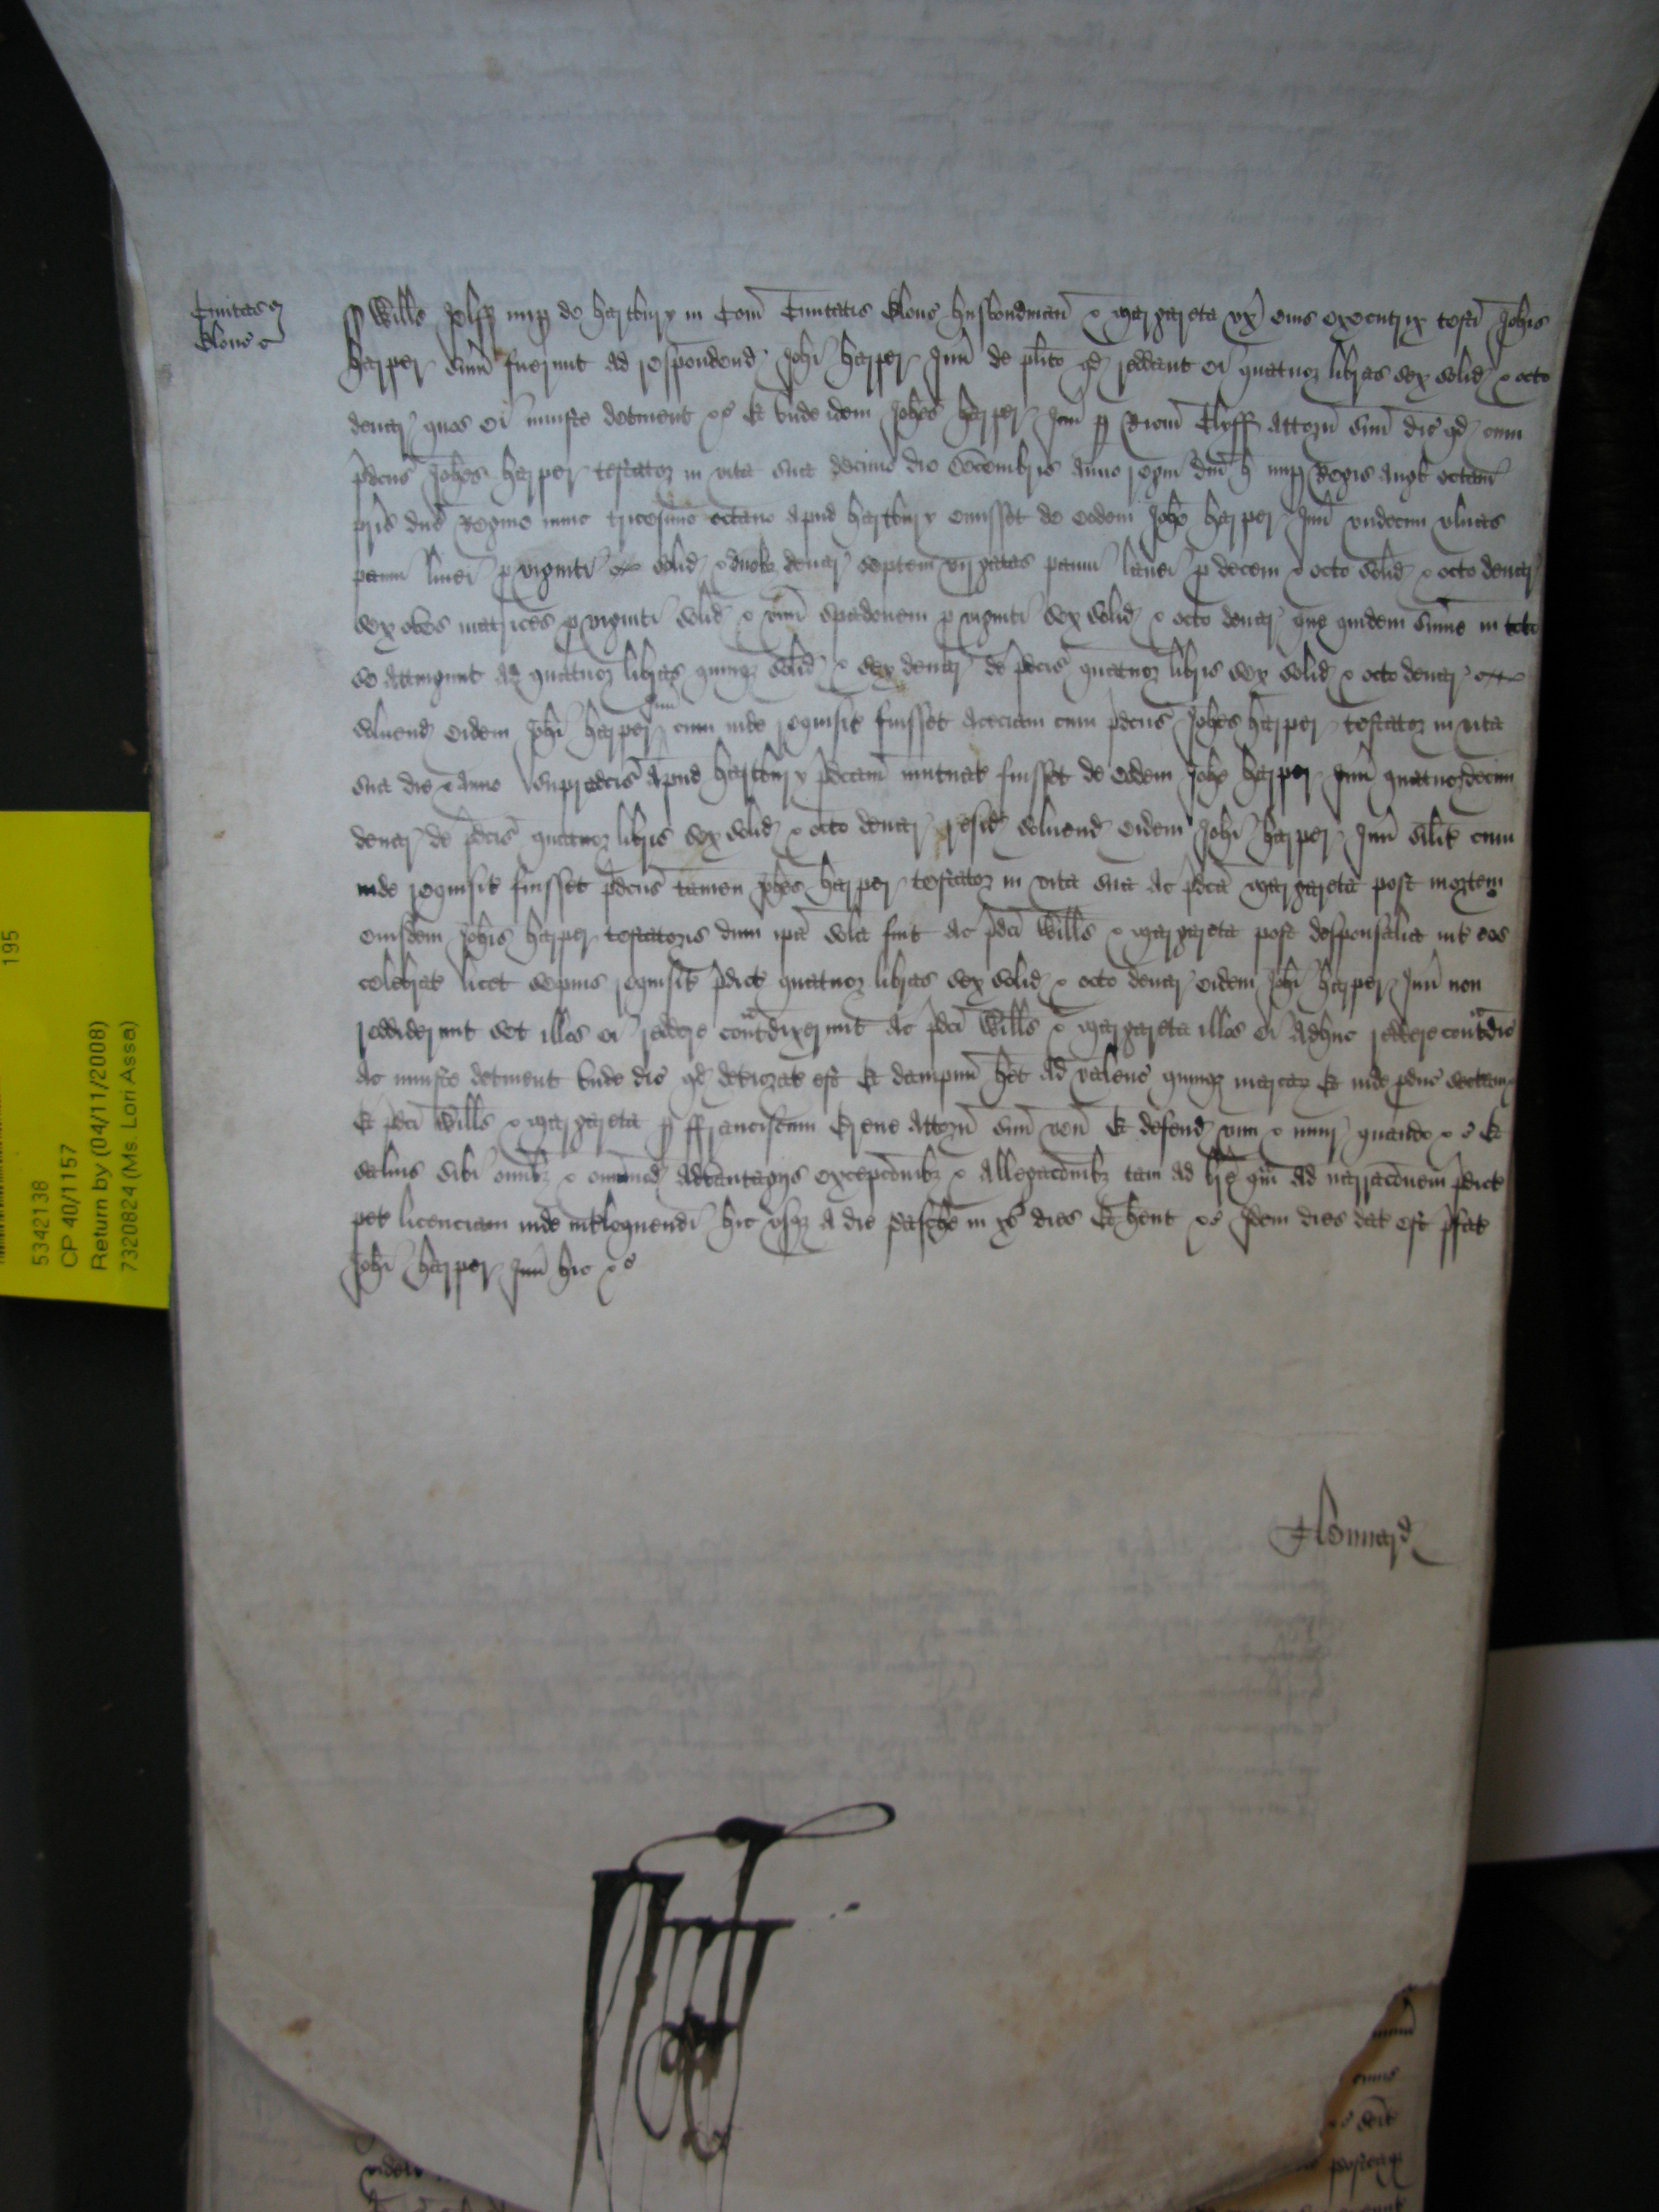 Civitas
Glouc
Willms de hartbury in Com Civitatis Glouc husbondman & Margareta ux eius executrix testi Johis
harper sum fuerunt ad respondend Johi harper Jun de plito qd reddant ei quatuor libras sex solid & octo
denar quos ei iniuste detinent &c Et unde idem Johes harper Jun p Ricm Clyff Attorn suu dic qd cum
pdcus Johes harper testator in vita sua decimo die Decembris anno regni dni h nup Regis Angl octavi
pris dne Regine nunc tricesimo octavo apud hartbury emisset de eodem Johe harper Jun undecim ulnas
panni linei p viginti solid & duobz denar septem virgatas panni lanei p decem & octo solid & octo denar
sex oves matrices p viginti solid & unu spadonem p viginti sex solid & octo denar que quidem sume in toto
se attingunt ad quatuor libras quinqz solid & sex denar de pdcis quatuor libris sex solid & octo denar
Jun
solvend eidem Johi harper cum inde requisit fuisset aceciam cum pdcus Johes harper testator in vita
sua die & anno supradcis apud hartbury pdcam mutuat fuisset de eodem Johe harper Jun quatuordecim
denar de pdcis quatuor libris sex solid & octo denar resid solvend eidem Johi harper Jun silit cum
inde requisit fuisset pdcus tamen Johes harper testator in vita sua ac pdca Margareta post mortem
eiusdem Johis harper testatoris dum ipa sola fuit ac pdci Willms & Margareta post desponsalia int eos
celebrat licet sepius requisit pdict quatuor libras sex solid & octo denar eidem Johi harper Jun non
reddiderunt set illas ei reddere contradixerunt ac pdci Willms & Margareta illas ei adhuc reddere contradic
ac iniuste detinent unde dic qd deteriorat est Et dampnu het ad valenc quinqz marcar Et inde pduc sectam
Et pdci Willms & Margareta p ffranciscum Grene Attorn suu ven Et defend vim & iniur quando &c Et
salvis sibi omibz & omimod advantagiis excepcionibz & allegacionibz tam ad bre qm ad narracionem pdict
pet licenciam inde intloquendi hic usqz a die pasche in xv dies Et hent &c Idem dies dat est pfat
Johi harper Jun hic &c
195
5342138
CP 40/1157
Return by (04/11/2008)
7320824 (Ms. Lori Assa)